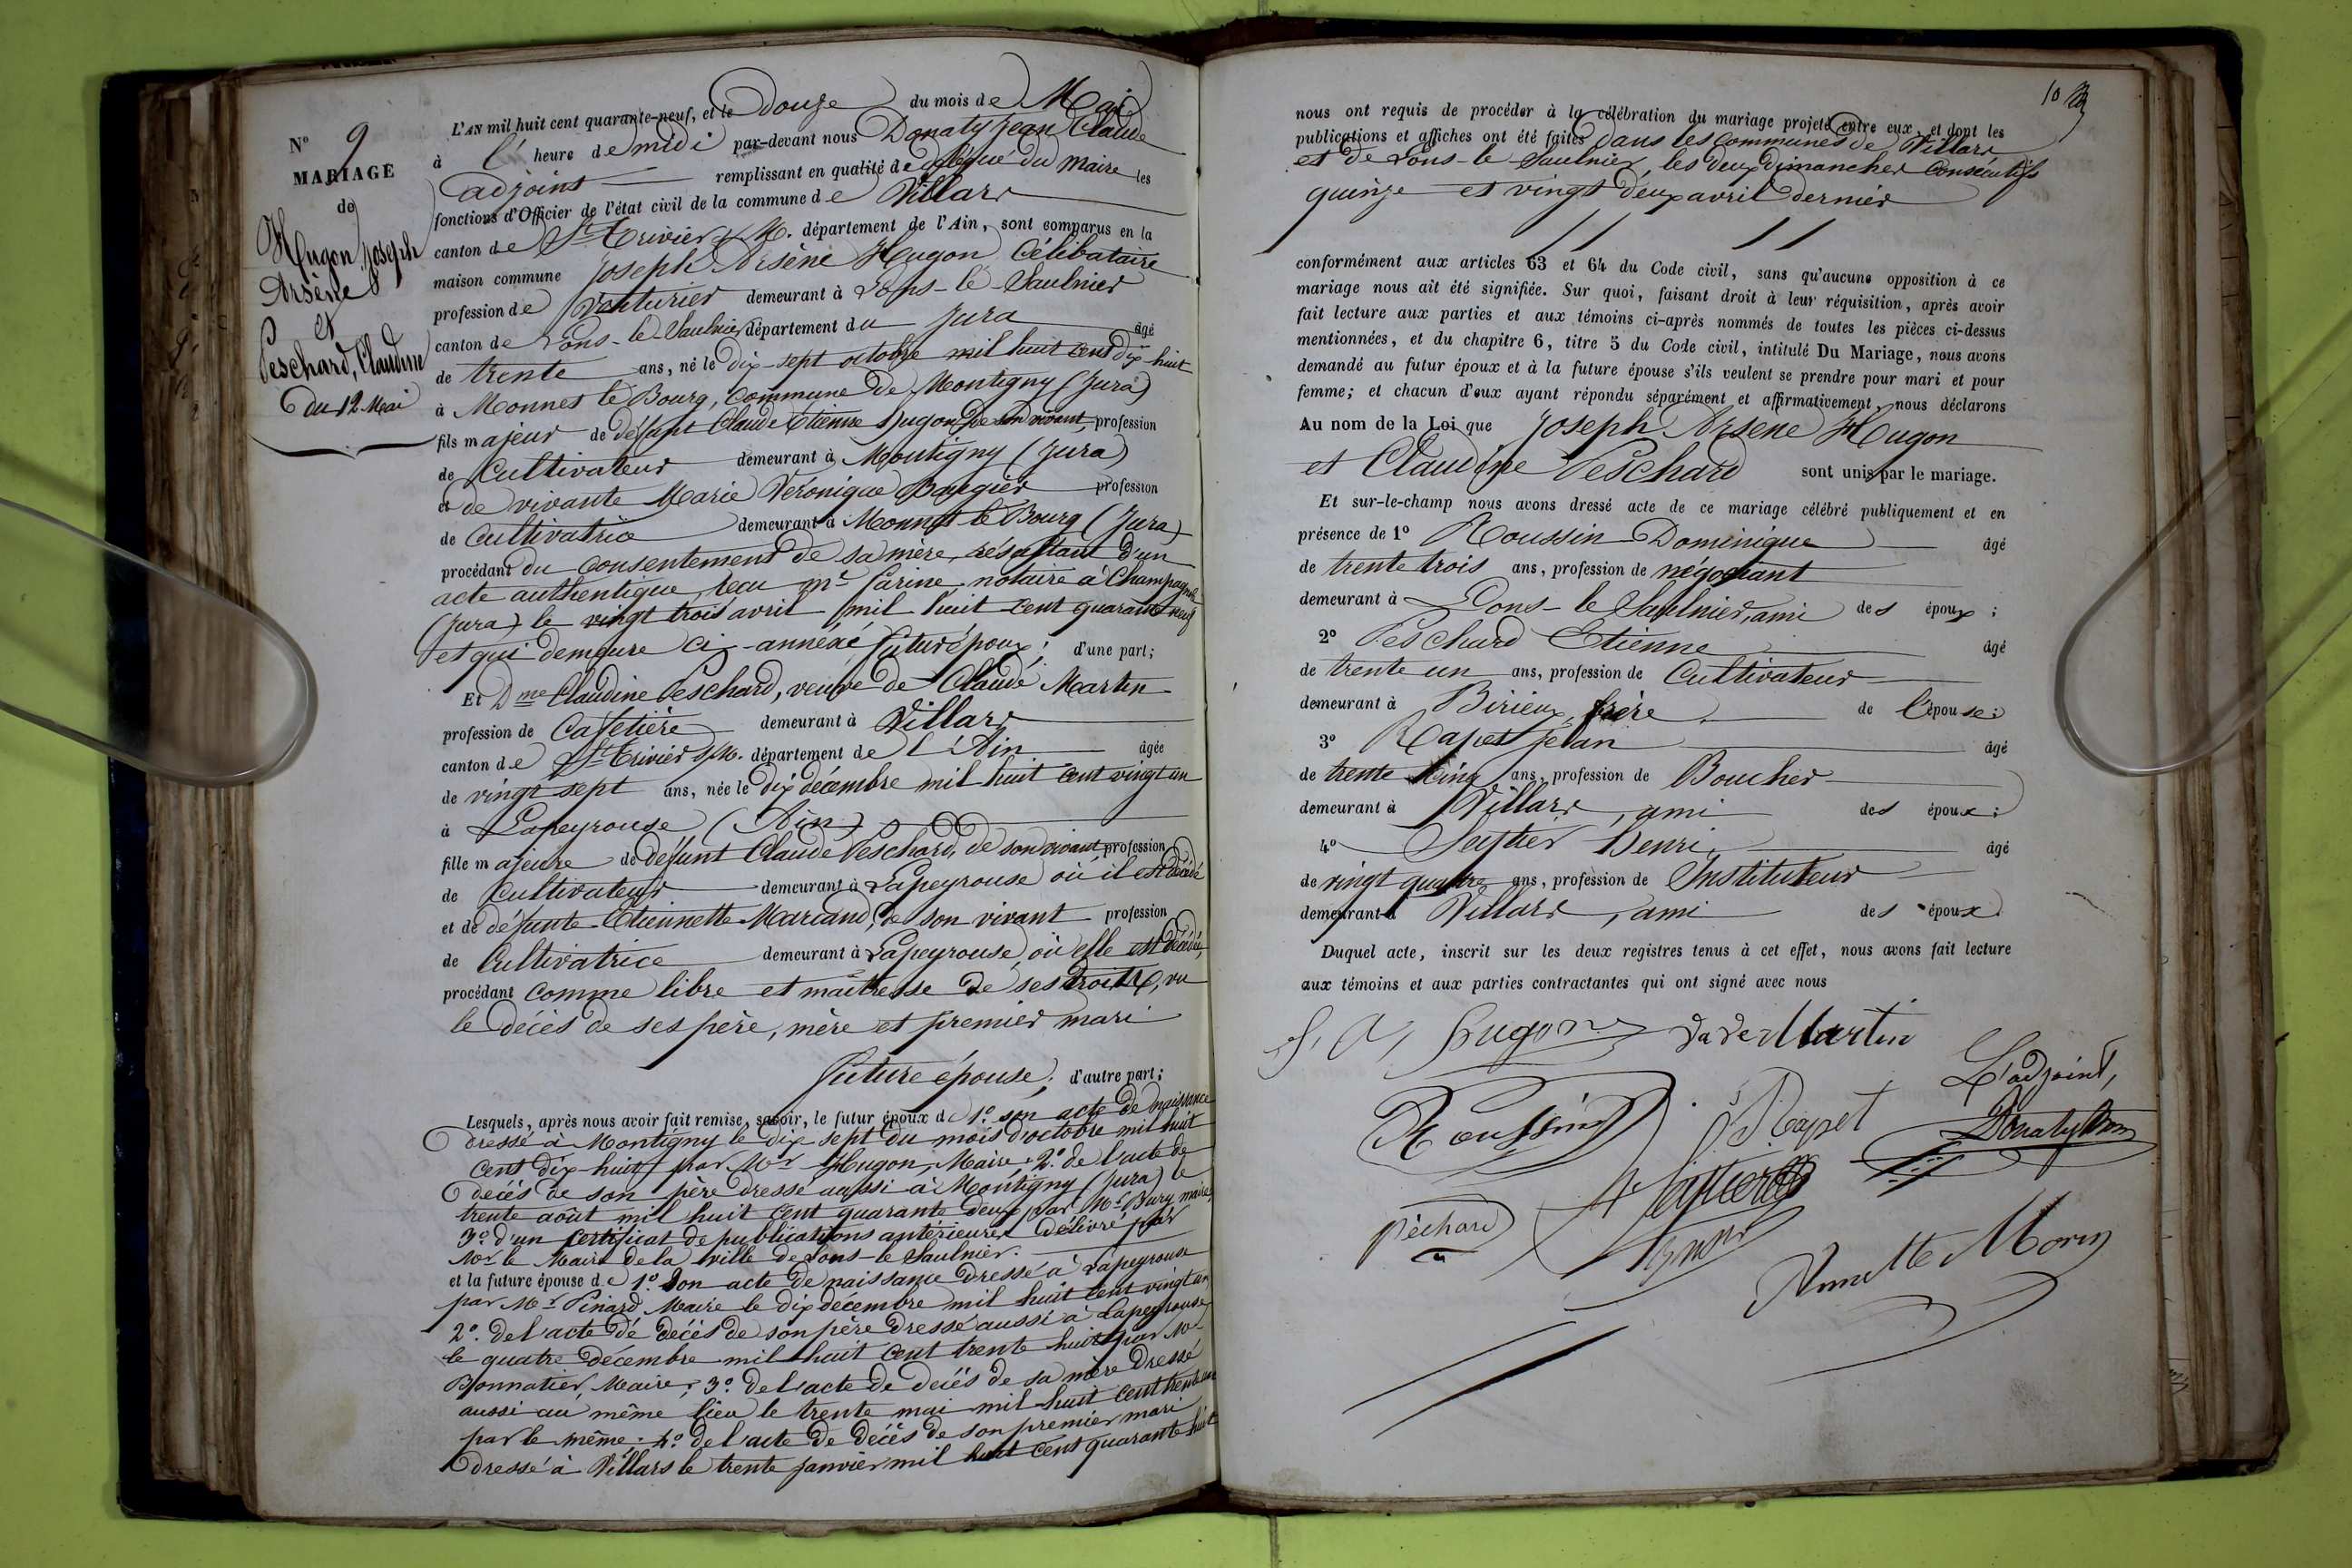 N° 9
MARIAGE
de
Hugon, Joseph
Arsène
et
Peschard, Claudine
du 12 Mai
L'AN mil huit cent quarante-neuf, et le Douze du mois de Mai
à l' heure de midi par-devant nous Donaty Jean Claude
adjoint remplissant en qualité de délégué du Maire les
fonctions d'Officier de l'état civil de la commune de Villars
canton de St Trivier s/ M. département de l'Ain, sont comparus en la
maison commune Joseph Arsène Hugon Célibataire
profession de Voiturier demeurant à Lons-le-Saulnier
canton de Lons-le-Saulnier département du Jura âgé
de trente ans, né le dix-sept octobre mil huit cent dix-huit
à Monnet le Bourg, Commune de Montigny (Jura)
fils majeur de défunt Claude Etienne Hugon de son vivant profession
de Cultivateur demeurant à Montigny (Jura)
et de vivante Marie Véronique profession
de Cultivatrice demeurant à Monnet le Bourg (Jura)
procédant du consentement de sa mère, résultant d'un
acte authentique, reçu Mr notaire à Champagnole
(Jura) le vingt trois avril mil huit cent quarante neuf
et qui demeure ci-annexé futur époux; d'une part;
Et Dme Claudine Peschard, veuve de Claude Martin
profession de Cafetière demeurant à Villars
canton de St Trivier s/M. département de l'Ain âgée
de vingt sept ans, née le dix décembre mil huit cent vingt un
à Lapeyrouse (Ain)
fille majeure de défunt Claude Peschard, de son vivant, profession
de Cultivateur demeurant à Lapeyrouse où il est décédé
et de défunte Etiennette Marcand, de son vivant profession
de Cultivatrice demeurant à Lapeyrouse, où elle est décédée,
procédant comme libre et maîtresse de ses droits, vu
le décès de ses père, mère et premier mari
future épouse; d'autre part;
Lesquels, après nous avoir fait remise, savoir, le futur époux de 1° son acte de naissance
dressé à Montigny le dix sept du mois d'octobre mil huit
cent dix-huit par Mr Hugon, Maire; 2° de l'acte de
décès de son père dressé aussi à Montigny (Jura) le
trente août mil huit cent quarante deux par Mr Bury maire
3° d'un certificat de publications antérieures délivré par
Mr le Maire de la ville de Lons-le-Saulnier.
et la future épouse de 1° Son acte de naissance dressé à Lapeyrouse
par Mr Pinard Maire le dix décembre mil huit cent vingt un
2° de l'acte de décès de son père dressé aussi à Lapeyrouse
le quatre décembre mil huit cent trente huit par Mr
Bonnatier, Maire; 3° de l'acte de décès de sa mère dressé
aussi au même lieu le trente mai mil huit cent
par le même. 4° de l'acte de décès de son premier mari
dressé à Villars le trente janvier mil huit cent quarante huit
10
nous ont requis de procéder à la célébration du mariage projeté entre eux, et dont les
publications et affiches ont été faites dans les communes de Villars
et de Lons-le-Saulnier, les deux dimanches consécutifs
quinze et vingt deux avril dernier
conformément aux articles 63 et 64 du Code civil, sans qu'aucune opposition à ce
mariage nous ait été signifiée. Sur quoi, faisant droit à leur réquisition, après avoir
fait lecture aux parties et aux témoins ci-après nommés de toutes les pièces ci-dessus
mentionnées, et du chapitre 6, titre 5 du Code civil, intitulé Du Mariage, nous avons
demandé au futur époux et à la future épouse s'ils veulent se prendre pour mari et pour
femme; et chacun d'eux ayant répondu séparément et affirmativement, nous déclarons
Au nom de la Loi que Joseph Arsene Hugon
et Claudine Peschard sont unis par le mariage.
Et sur-le-champ nous avons dressé acte de ce mariage célébré publiquement et en
présence de 1° Roussin Dominique âgé
de trente trois ans, profession de négociant
demeurant à Lons-le Saulnier, ami des époux;
2° Peschard Etienne âgé
de trente un ans, profession de Cultivateur
demeurant à Birieux, frère de l'épouse;
3° Rapet Jean âgé
de trente cinq ans, profession de Boucher
demeurant à Villars, ami des époux;
4° Henri âgé
de vingt quatre ans, profession de Instituteur
demeurant à Villars, ami des époux.
Duquel acte, inscrit sur les deux registres tenus à cet effet, nous avons fait lecture
aux témoins et aux parties contractantes qui ont signé avec nous
J. A. Hugon Va ve Martin
L'adjoint,
Roussin J Rapet Donaty
Péchard
Annette Morin